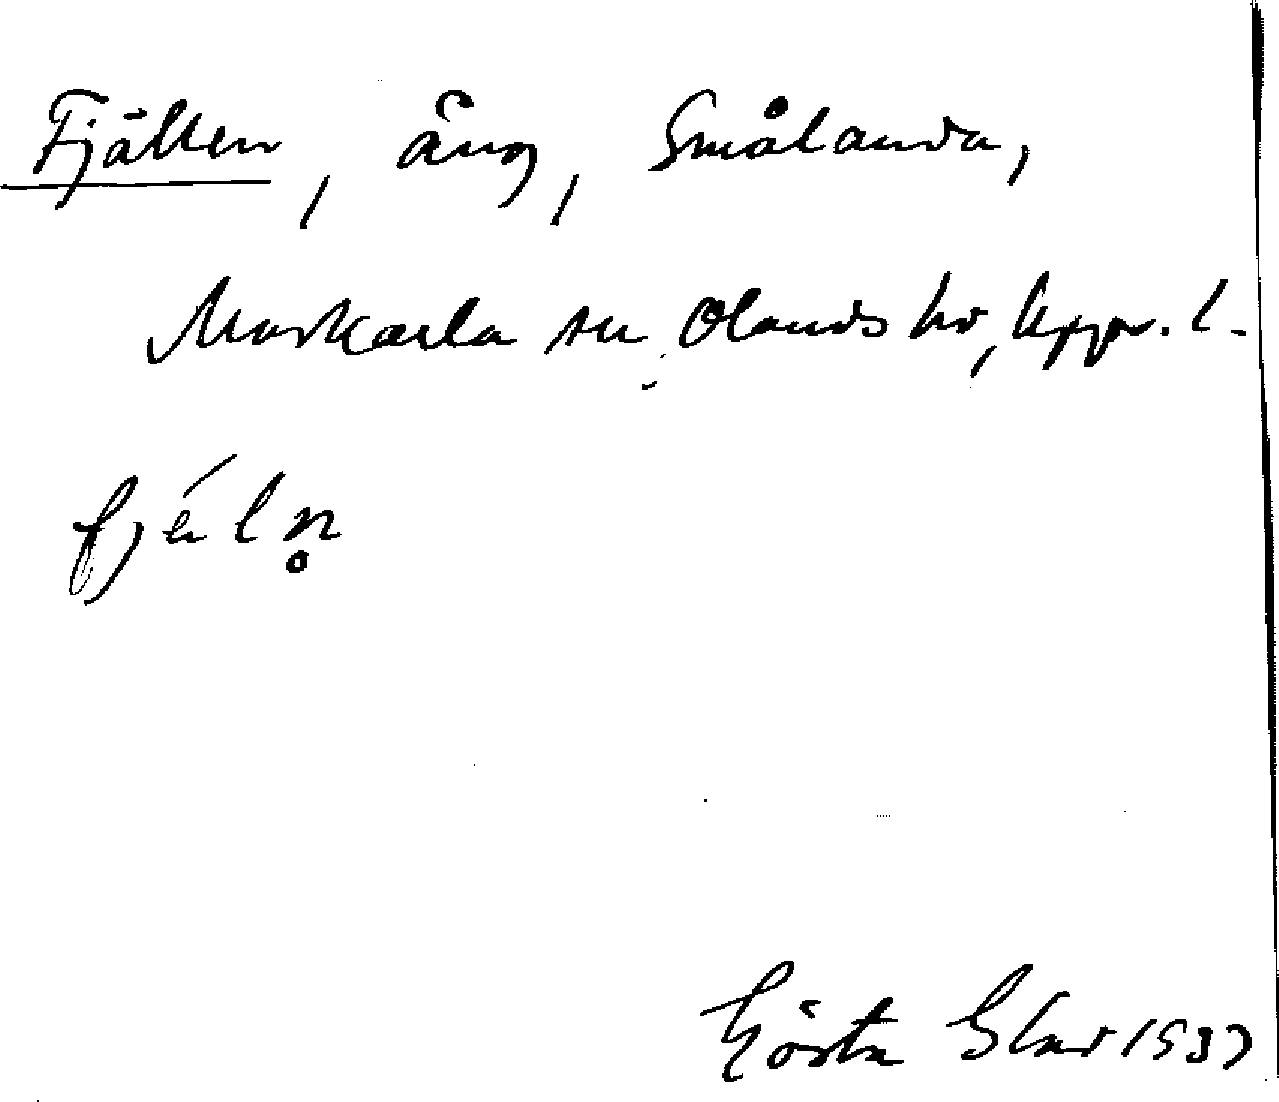 Fjällen, äng, Smålanda,
Morkarla sn, Olands hd, Upps. l.
fjélṇ̊
Gösta Glad 1937